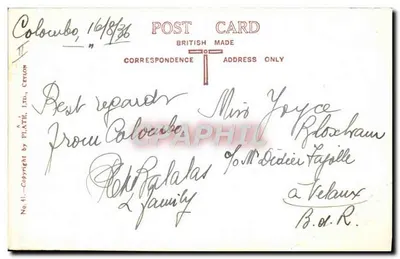 Colombo, 16/8/36
POST CARD
BRITISH MADE
CORRESPONDENCE ADDRESS ONLY
No. 41.—Copyright by PLÂTÉ, LTD., CEYLON
Best regards
from Colombo
& family
Miss Joyce
Bloxham
c/o Mr Didier Fajolle
à Velaux
B.d.R.
CPAPHIL